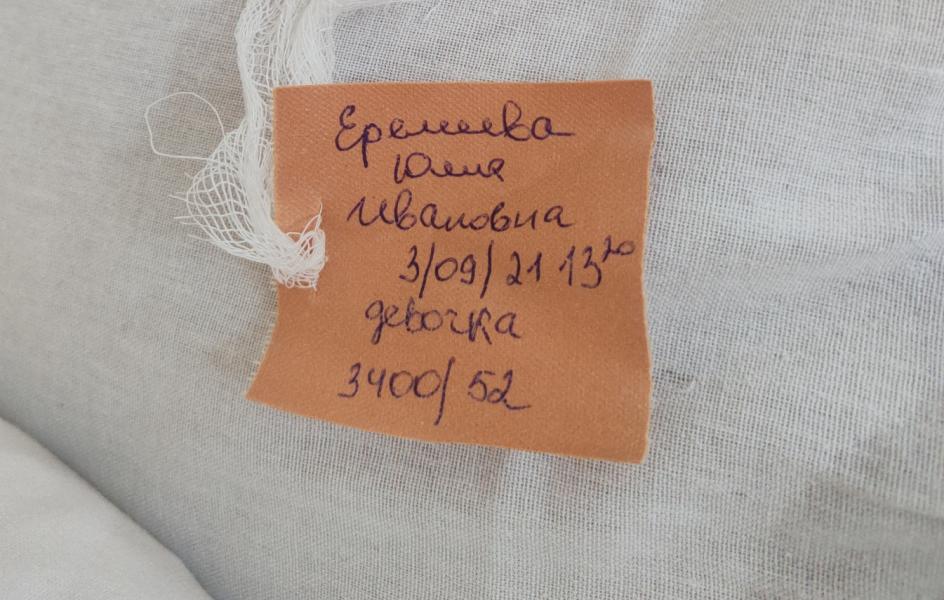 Еремеева
Юлия
Ивановна
3/09/21 13²⁰
девочка
3400/52